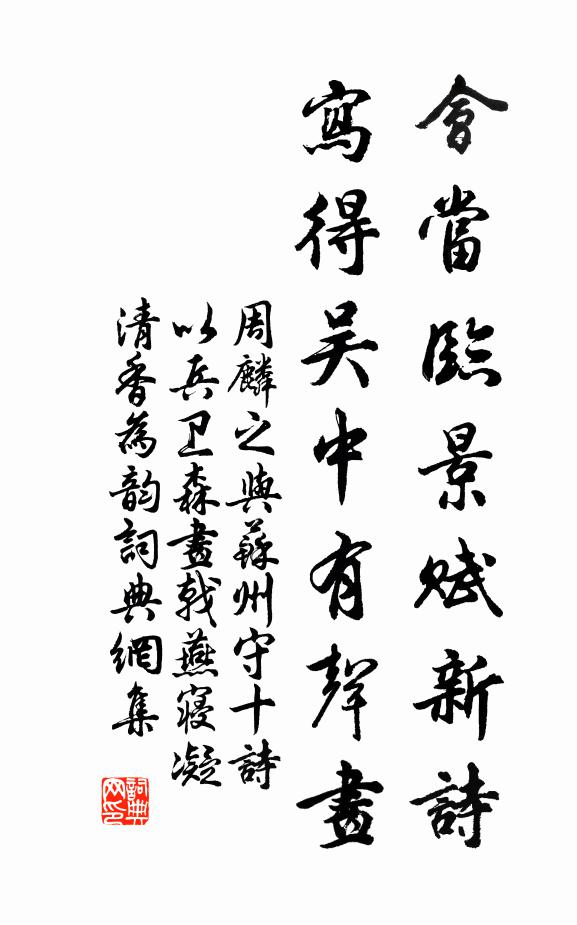 會當臨景賦新詩
寫得吴中有聲畫
周麟之與蘇州守十詩
以兵卫森畫戟燕寢凝
清香為韵詞典網集
詞典网印